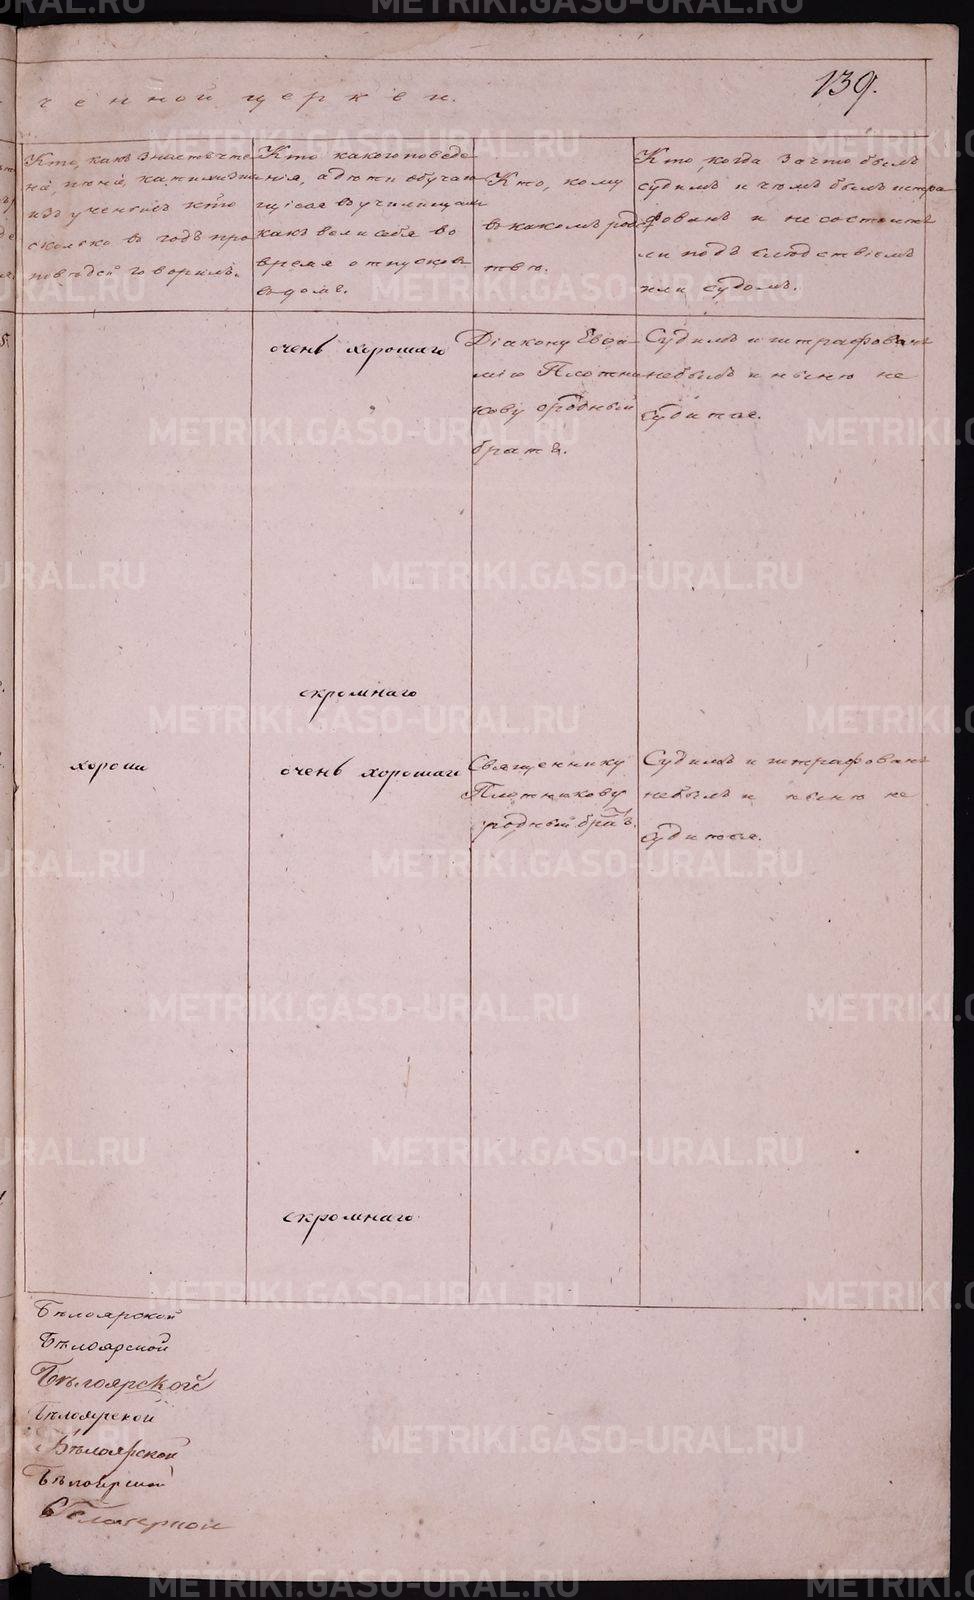 139.
ченной церкви.
Кто, какъ знаетъ чте
ніе, пѣніе, катихизи
изъ ученыхъ кто
сколько въ годъ про
повѣдей говорилъ.
Кто какого поведе
нія, а дѣти обучаю
щіеся въ училищахъ
какъ вели себя во
время отпусковъ
въ доме.
Кто, кому
въ какомъ родс
твѣ.
Кто, когда за что былъ
судимъ и чѣмъ былъ штра
фованъ и не состоитъ
ли подъ слѣдствіемъ
или судомъ.
очень хорошаго
Діакону Евѳи
мію Плотни
кову родный
братъ.
Судимъ и штрафованъ
небылъ и нынѣ не
судится.
скромнаго
хорошо
очень хорошаго
Священнику
Плотникову
родный братъ.
Судимъ и штрафованъ
небылъ и нынѣ не
судится.
скромнаго
Бѣлоярской
Бѣлоярской
Бѣлоярской
Бѣлоярской
Бѣлоярской
Бѣлоярской
METRIKI.GASO-URAL.RU